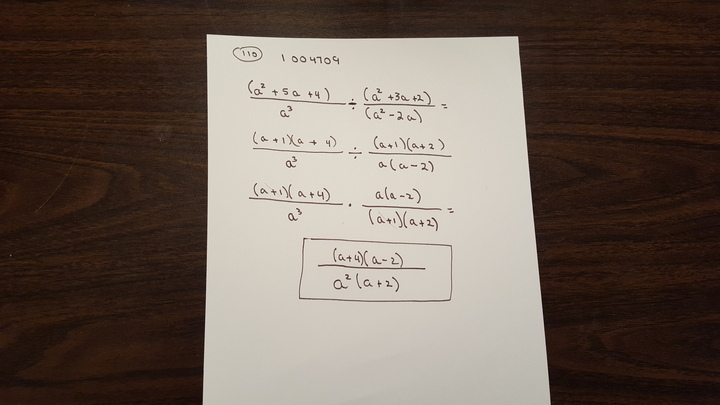 110 1004709
(a² + 5a + 4) / a³ ÷ (a² + 3a + 2) / (a² - 2a) =
(a + 1)(a + 4) / a³ ÷ (a+1)(a+2) / a(a-2)
(a+1)(a+4) / a³ · a(a-2) / (a+1)(a+2) =
(a+4)(a-2) / a²(a+2)